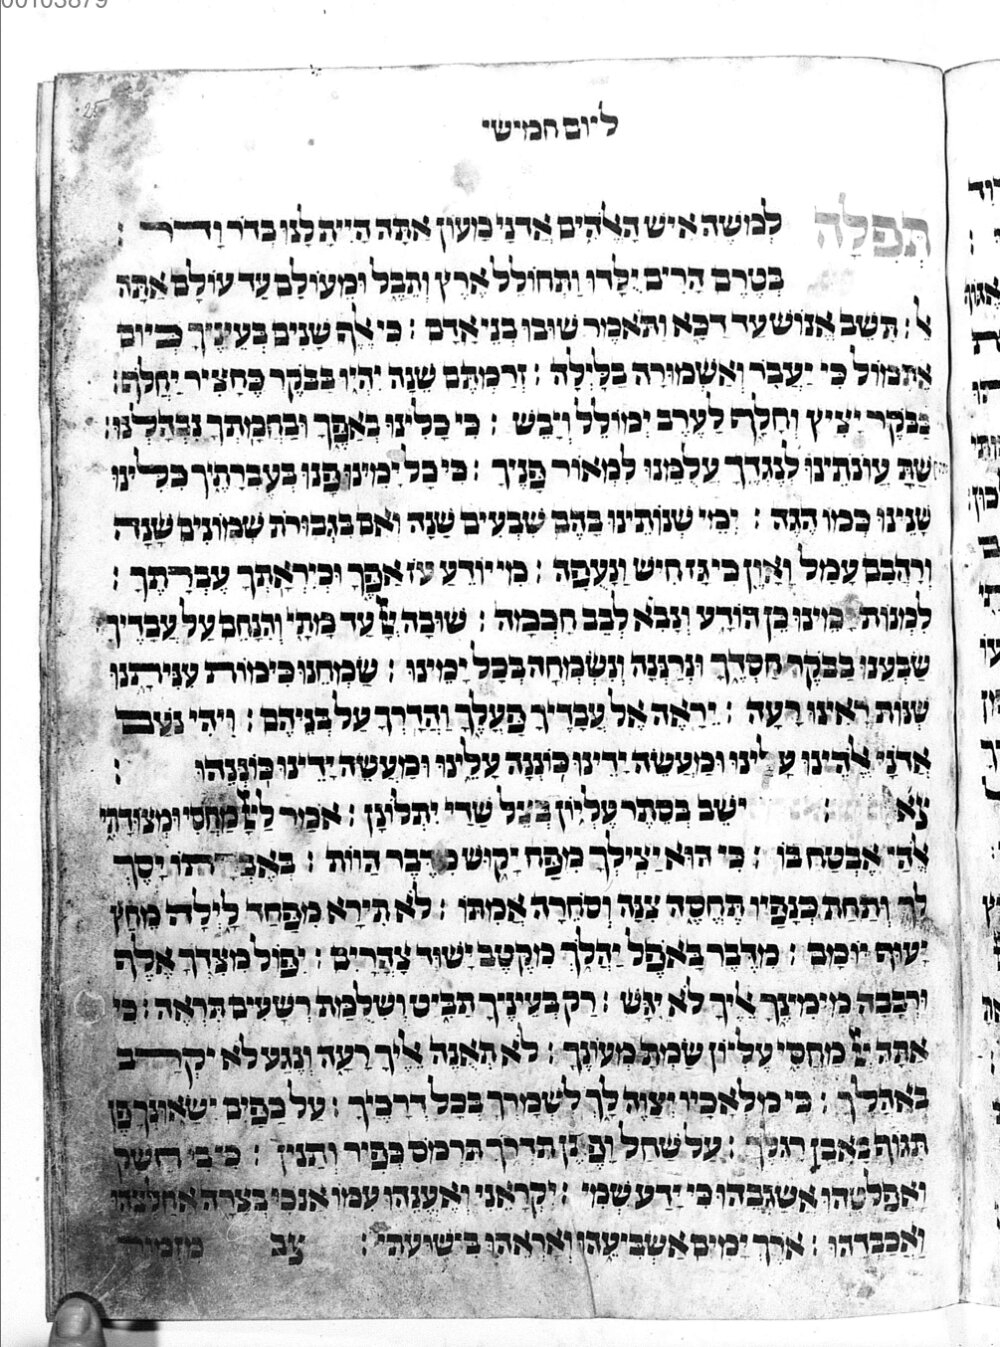 00103879
25
ליום חמישי
תְּפִלָּה לְמֹשֶׁה אִישׁ הָאֱלֹהִים אֲדֹנָי מָעוֹן אַתָּה הָיִיתָ לָּנוּ בְּדֹר וָדֹר :
בְּטֶרֶם הָרִים יֻלָּדוּ וַתְּחוֹלֵל אֶרֶץ וְתֵבֵל וּמֵעוֹלָם עַד עוֹלָם אַתָּה
אל : תָּשֵׁב אֱנוֹשׁ עַד דַּכָּא וַתֹּאמֶר שׁוּבוּ בְנֵי אָדָם : כִּי אֶלֶף שָׁנִים בְּעֵינֶיךָ כְּיוֹם
אֶתְמוֹל כִּי יַעֲבֹר וְאַשְׁמוּרָה בַלָּיְלָה : זְרַמְתָּם שֵׁנָה יִהְיוּ בַּבֹּקֶר כֶּחָצִיר יַחֲלֹף :
בַּבֹּקֶר יָצִיץ וְחָלָף לָעֶרֶב יְמוֹלֵל וְיָבֵשׁ : כִּי כָלִינוּ בְאַפֶּךָ וּבַחֲמָתְךָ נִבְהָלְנוּ :
שַׁתָּ עֲוֹנֹתֵינוּ לְנֶגְדֶּךָ עֲלֻמֵנוּ לִמְאוֹר פָּנֶיךָ : כִּי כָל יָמֵינוּ פָּנוּ בְעֶבְרָתֶךָ כִּלִּינוּ
שָׁנֵינוּ כְמוֹ הֶגֶה : יְמֵי שְׁנוֹתֵינוּ בָהֶם שִׁבְעִים שָׁנָה וְאִם בִּגְבוּרֹת שְׁמוֹנִים שָׁנָה
וְרָהְבָּם עָמָל וָאָוֶן כִּי גָז חִישׁ וַנָּעֻפָה : מִי יוֹדֵעַ עֹז אַפֶּךָ וּכְיִרְאָתְךָ עֶבְרָתֶךָ :
לִמְנוֹת יָמֵינוּ כֵּן הוֹדַע וְנָבִא לְבַב חָכְמָה : שׁוּבָה יְיָ עַד מָתָי וְהִנָּחֵם עַל עֲבָדֶיךָ
שַׂבְּעֵנוּ בַבֹּקֶר חַסְדֶּךָ וּנְרַנְּנָה וְנִשְׂמְחָה בְּכָל יָמֵינוּ : שַׂמְּחֵנוּ כִּימוֹת עִנִּיתָנוּ
שְׁנוֹת רָאִינוּ רָעָה : יֵרָאֶה אֶל עֲבָדֶיךָ פָעֳלֶךָ וַהֲדָרְךָ עַל בְּנֵיהֶם : וִיהִי נֹעַם
אֲדֹנָי אֱלֹהֵינוּ עָלֵינוּ וּמַעֲשֵׂה יָדֵינוּ כּוֹנְנָה עָלֵינוּ וּמַעֲשֵׂה יָדֵינוּ כּוֹנְנֵהוּ :
צא : יֹשֵׁב בְּסֵתֶר עֶלְיוֹן בְּצֵל שַׁדַּי יִתְלוֹנָן : אֹמַר לַיְיָ מַחְסִי וּמְצוּדָתִי
אֱלֹהַי אֶבְטַח בּוֹ : כִּי הוּא יַצִּילְךָ מִפַּח יָקוּשׁ מִדֶּבֶר הַוּוֹת : בְּאֶבְרָתוֹ יָסֶךְ
לָךְ וְתַחַת כְּנָפָיו תֶּחְסֶה צִנָּה וְסֹחֵרָה אֲמִתּוֹ : לֹא תִירָא מִפַּחַד לָיְלָה מֵחֵץ
יָעוּף יוֹמָם : מִדֶּבֶר בָּאֹפֶל יַהֲלֹךְ מִקֶּטֶב יָשׁוּד צָהֳרָיִם : יִפּוֹל מִצִּדְּךָ אֶלֶף
וּרְבָבָה מִימִינֶךָ אֵלֶיךָ לֹא יִגָּשׁ : רַק בְּעֵינֶיךָ תַבִּיט וְשִׁלֻּמַת רְשָׁעִים תִּרְאֶה : כִּי
אַתָּה יְיָ מַחְסִי עֶלְיוֹן שַׂמְתָּ מְעוֹנֶךָ : לֹא תְאֻנֶּה אֵלֶיךָ רָעָה וְנֶגַע לֹא יִקְרַב
בְּאָהֳלֶךָ : כִּי מַלְאָכָיו יְצַוֶּה לָּךְ לִשְׁמָרְךָ בְּכָל דְּרָכֶיךָ : עַל כַּפַּיִם יִשָּׂאוּנְךָ פֶּן
תִּגּוֹף בָּאֶבֶן רַגְלֶךָ : עַל שַׁחַל וָפֶתֶן תִּדְרֹךְ תִּרְמֹס כְּפִיר וְתַנִּין : כִּי בִי חָשַׁק
וַאֲפַלְּטֵהוּ אֲשַׂגְּבֵהוּ כִּי יָדַע שְׁמִי : יִקְרָאֵנִי וְאֶעֱנֵהוּ עִמּוֹ אָנֹכִי בְצָרָה אֲחַלְּצֵהוּ
וַאֲכַבְּדֵהוּ : אֹרֶךְ יָמִים אַשְׂבִּיעֵהוּ וְאַרְאֵהוּ בִּישׁוּעָתִי : צב מזמור